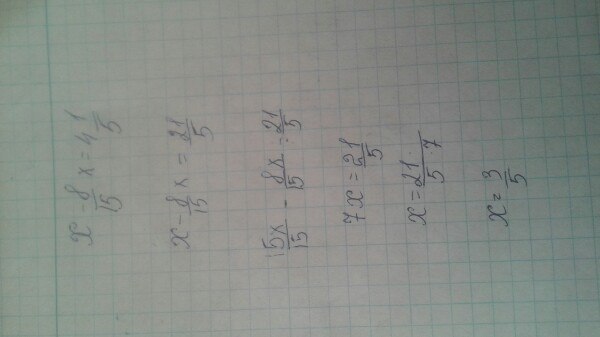 x - 8/15 x = 4 1/5
x - 8/15 x = 21/5
15x/15 - 8x/15 = 21/5
7x = 21/5
x = 21/5 : 7
x = 3/5